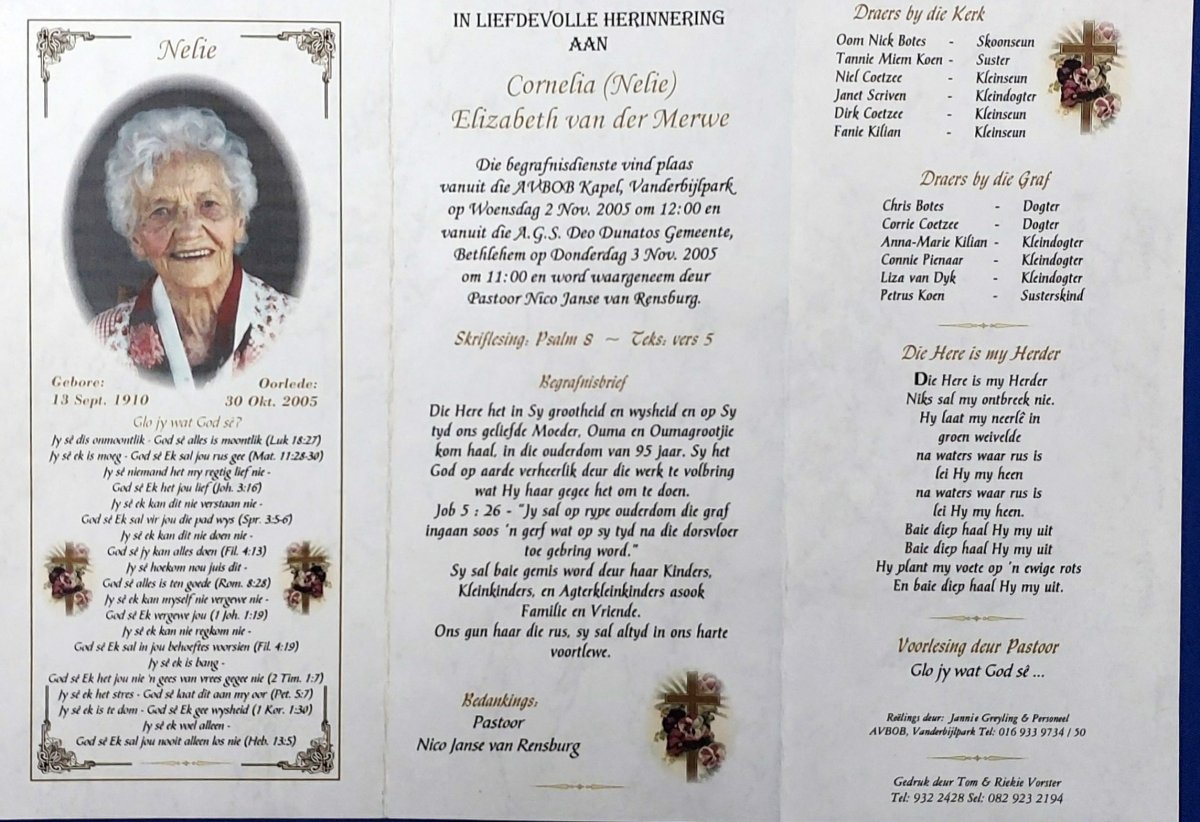 Nelie
Gebore:
13 Sept. 1910
Oorlede:
30 Okt. 2005
Glo jy wat God sê?
Jy sê dis onmoontlik - God sê alles is moontlik (Luk 18:27)
Jy sê ek is moeg - God sê Ek sal jou rus gee (Mat. 11:28-30)
Jy sê niemand het my regtig lief nie -
God sê Ek het jou lief (Joh. 3:16)
Jy sê ek kan dit nie verstaan nie -
God sê Ek sal vir jou die pad wys (Spr. 3:5-6)
Jy sê ek kan dit nie doen nie -
God sê jy kan alles doen (Fil. 4:13)
Jy sê hoekom nou juis dit -
God sê alles is ten goede (Rom. 8:28)
Jy sê ek kan myself nie vergewe nie -
God sê Ek vergewe jou (1 Joh. 1:19)
Jy sê ek kan nie regkom nie -
God sê Ek sal in jou behoeftes voorsien (Fil. 4:19)
Jy sê ek is bang -
God sê Ek het jou nie 'n gees van vrees gegee nie (2 Tim. 1:7)
Jy sê ek het stres - God sê laat dit aan my oor (Pet. 5:7)
Jy sê ek is te dom - God sê Ek gee wysheid (1 Kor. 1:30)
Jy sê ek voel alleen -
God sê Ek sal jou nooit alleen los nie (Heb. 13:5)
IN LIEFDEVOLLE HERINNERING
AAN
Cornelia (Nelie)
Elizabeth van der Merwe
Die begrafnisdienste vind plaas
vanuit die AVBOB Kapel, Vanderbijlpark
op Woensdag 2 Nov. 2005 om 12:00 en
vanuit die A.G.S. Deo Dunatos Gemeente,
Bethlehem op Donderdag 3 Nov. 2005
om 11:00 en word waargeneem deur
Pastoor Nico Janse van Rensburg.
Skriflesing: Psalm 8 ~ Teks: vers 5
Begrafnisbrief
Die Here het in Sy grootheid en wysheid en op Sy
tyd ons geliefde Moeder, Ouma en Oumagrootjie
kom haal, in die ouderdom van 95 jaar. Sy het
God op aarde verheerlik deur die werk te volbring
wat Hy haar gegee het om te doen.
Job 5 : 26 - "Jy sal op rype ouderdom die graf
ingaan soos 'n gerf wat op sy tyd na die dorsvloer
toe gebring word."
Sy sal baie gemis word deur haar Kinders,
Kleinkinders, en Agterkleinkinders asook
Familie en Vriende.
Ons gun haar die rus, sy sal altyd in ons harte
voortlewe.
Bedankings:
Pastoor
Nico Janse van Rensburg
Draers by die Kerk
Oom Nick Botes - Skoonseun
Tannie Miem Koen - Suster
Niel Coetzee - Kleinseun
Janet Scriven - Kleindogter
Dirk Coetzee - Kleinseun
Fanie Kilian - Kleinseun
Draers by die Graf
Chris Botes - Dogter
Corrie Coetzee - Dogter
Anna-Marie Kilian - Kleindogter
Connie Pienaar - Kleindogter
Liza van Dyk - Kleindogter
Petrus Koen - Susterskind
Die Here is my Herder
Die Here is my Herder
Niks sal my ontbreek nie.
Hy laat my neerlê in
groen weivelde
na waters waar rus is
lei Hy my heen
na waters waar rus is
lei Hy my heen.
Baie diep haal Hy my uit
Baie diep haal Hy my uit
Hy plant my voete op 'n ewige rots
En baie diep haal Hy my uit.
Voorlesing deur Pastoor
Glo jy wat God sê ...
Reëlings deur: Jannie Greyling & Personeel
AVBOB, Vanderbijlpark Tel: 016 933 9734 / 50
Gedruk deur Tom & Riekie Vorster
Tel: 932 2428 Sel: 082 923 2194